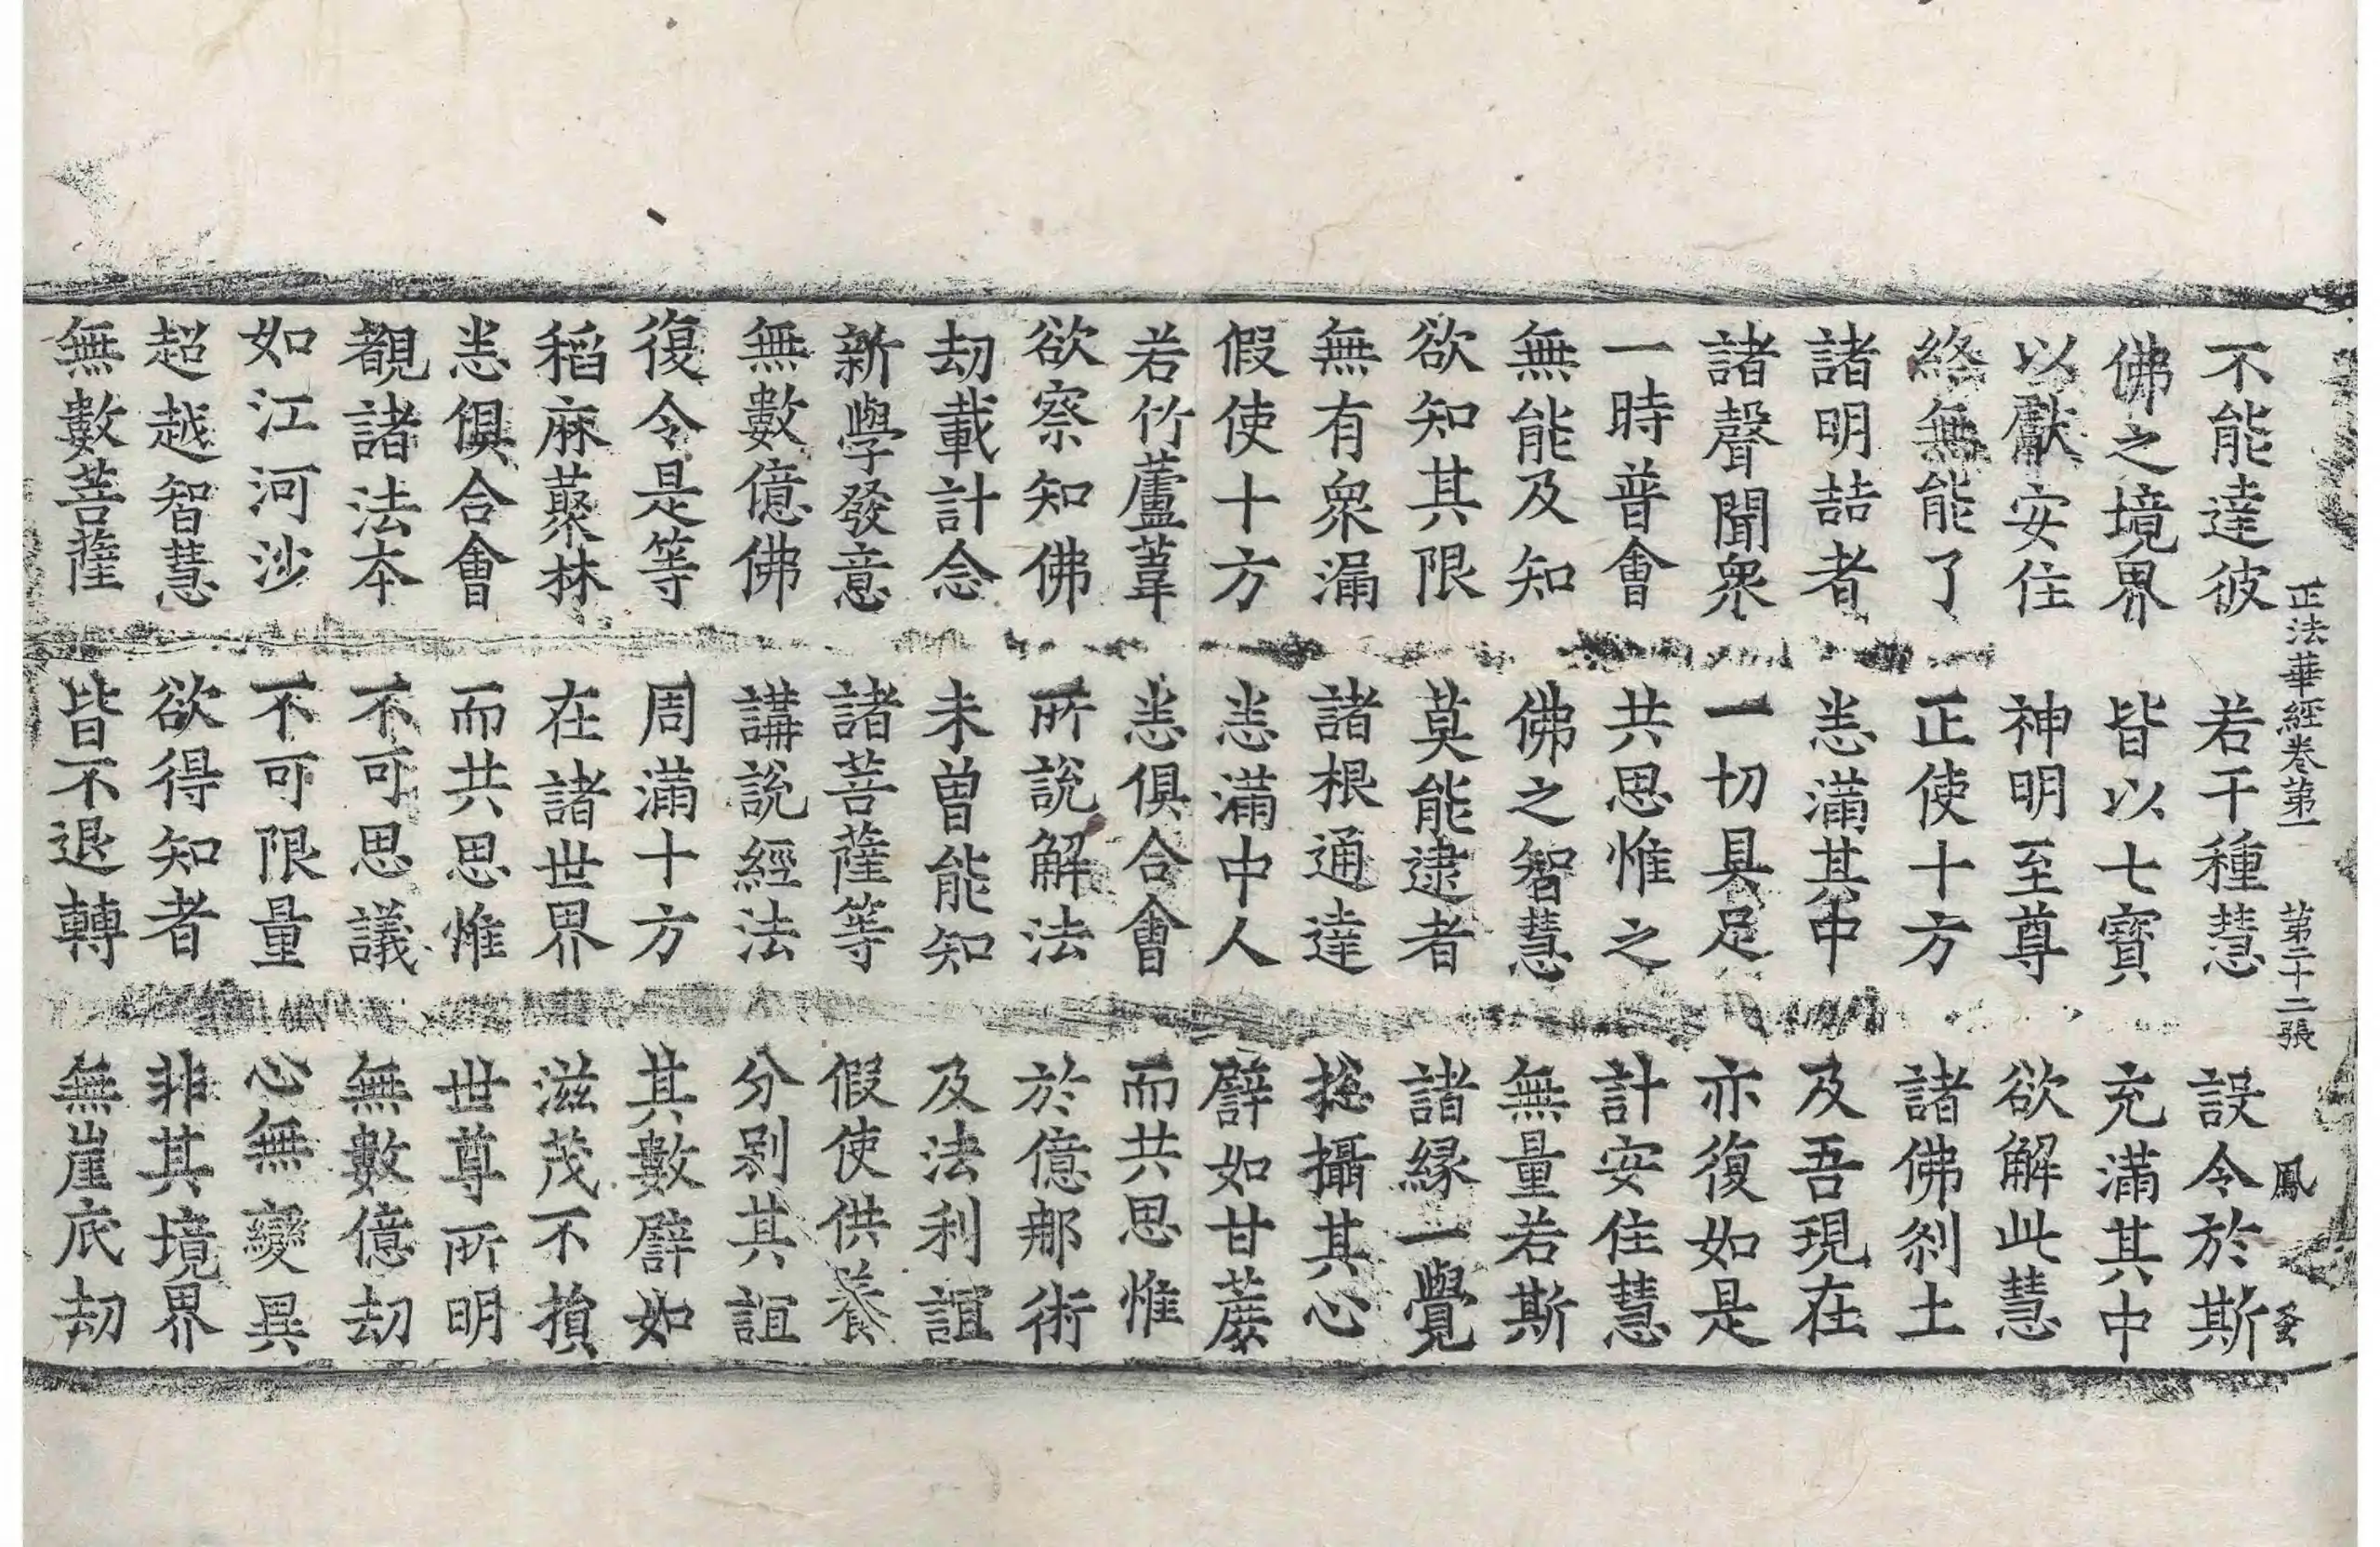 正法華經卷第一 第二十二張 鳳
不能達彼 若干種慧 設令於斯
佛之境界 皆以七寶 充滿其中
以獻安住 神明至尊 欲解此慧
終無能了 正使十方 諸佛刹土
諸明喆者 悉滿其中 及吾現在
諸聲聞衆 一切具足 亦復如是
一時普會 共思惟之 計安住慧
無能及知 佛之智慧 無量若斯
欲知其限 莫能逮者 諸縁一覺
無有衆漏 諸根通達 揔攝其心
假使十方 悉滿中人 譬如甘蔗
若竹蘆葦 悉俱合會 而共思惟
欲察知佛 所說解法 於億那術
劫載計念 未曽能知 及法利誼
新學發意 諸菩薩等 假使供養
無數億佛 講說經法 分别其誼
復令是等 周滿十方 其數譬如
稻麻藂林 在諸世界 滋茂不損
悉俱合會 而共思惟 世尊所明
覩諸法本 不可思議 無數億劫
如江河沙 不可限量 心無變異
超越智慧 欲得知者 非其境界
無數菩薩 皆不退轉 無崖底劫